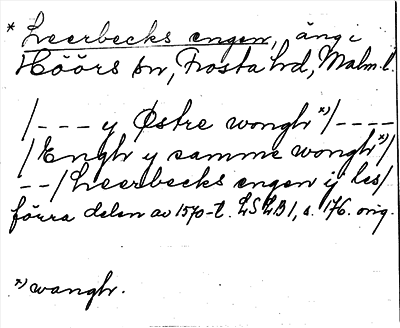 * Leerbecks engen, äng i
Höörs sn, Frosta hd, Malm. l.
/--- y Østre wongh *)/----
/Engh y samme wongh *)/
--/Leerbecks engen ij les/
förra delen av 1570-t. LSLB1, s. 176. orig.
*) wangh.